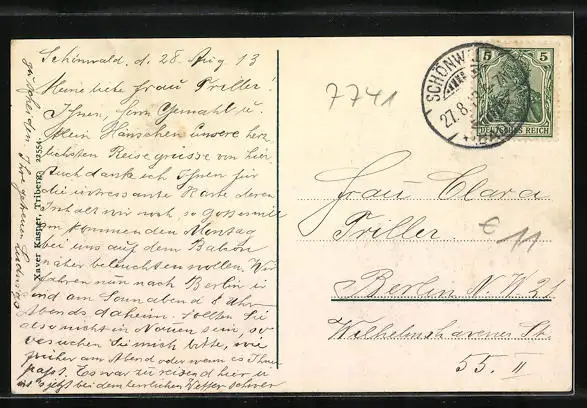 Schönwald, d. 28. Aug 13
Meine liebe Frau Triller!
Ihnen, Herrn Gemahl u.
Klein Hänschen unsere herz
lichsten Reisegrüsse von hier
Auch dank ich Ihnen für
die intressante Karte deren
Inhalt wir noch, so Gott will
am kommenden Montag
bei uns auf dem Balkon
näher beleuchten wollen. Wir
fahren nun nach Berlin u
sind am Sonnabend 8 Uhr
Abends daheim. Sollten Sie
also nicht in Nauen sein, so
besuchen Sie mich bitte, wie
früher am Abend oder wenn es Ihnen
passt. Es war zu reizend hier u
jetzt bei dem herrlichen Wetter schwer
Xaver Kasper, Triberg. 22554
7741
SCHÖNW
27.8.
5 5
DEUTSCHES REICH
Frau Clara
Triller
€ 11
Berlin N.W. 21
Wilhelmshavener Str.
55. II